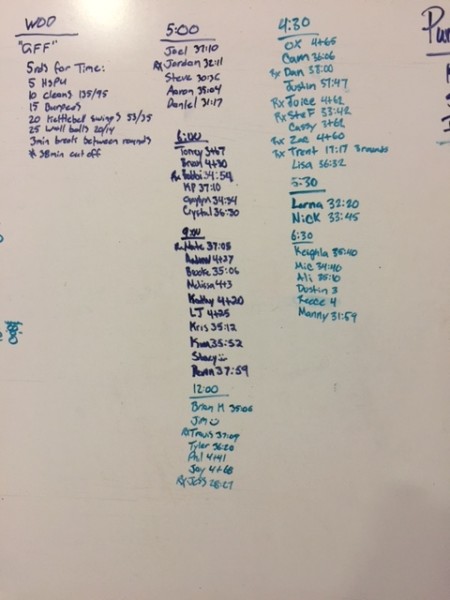 WOD
"GFF"
5rds for Time:
5 HSPU
10 cleans 135/95
15 Burpees
20 Kettlebell swings 53/35
25 wall balls 20/14
3min break between rounds
* 38min cut off
5:00
Joel 37:10
Rx Jordan 32:11
Steve 30:36
Aaron 35:04
Daniel 31:17
6:00
Torrey 3+67
Brad 4+30
Rx Bobbi 34:54
MP 37:10
34:34
Crystal 36:30
9:00
Rx Nate 37:05
Andrew 4+27
Brooke 35:06
Melissa 4+3
Kathy 4+20
LJ 4+25
Kris 35:12
Kim 35:52
Stacy
37:59
12:00
Brian H 35:06
Jim
Rx Travis 37:09
Tyler 36:20
Phil 4+41
Jay 4+68
Rx Jess 28:27
4:30
OX 4+65
Cam 36:06
Rx Dan 38:00
Justin 37:47
Rx Joice 4+62
Rx Stef 33:42
Cassy 3+62
Rx Zac 4+60
Rx Trent 17:17 3 rounds
Lisa 36:32
5:30
Lorna 32:20
Nick 33:45
6:30
Keighla 35:40
Mic 34:40
Ali 35:10
Dustin 3
Reece 4
Manny 31:59
Pu